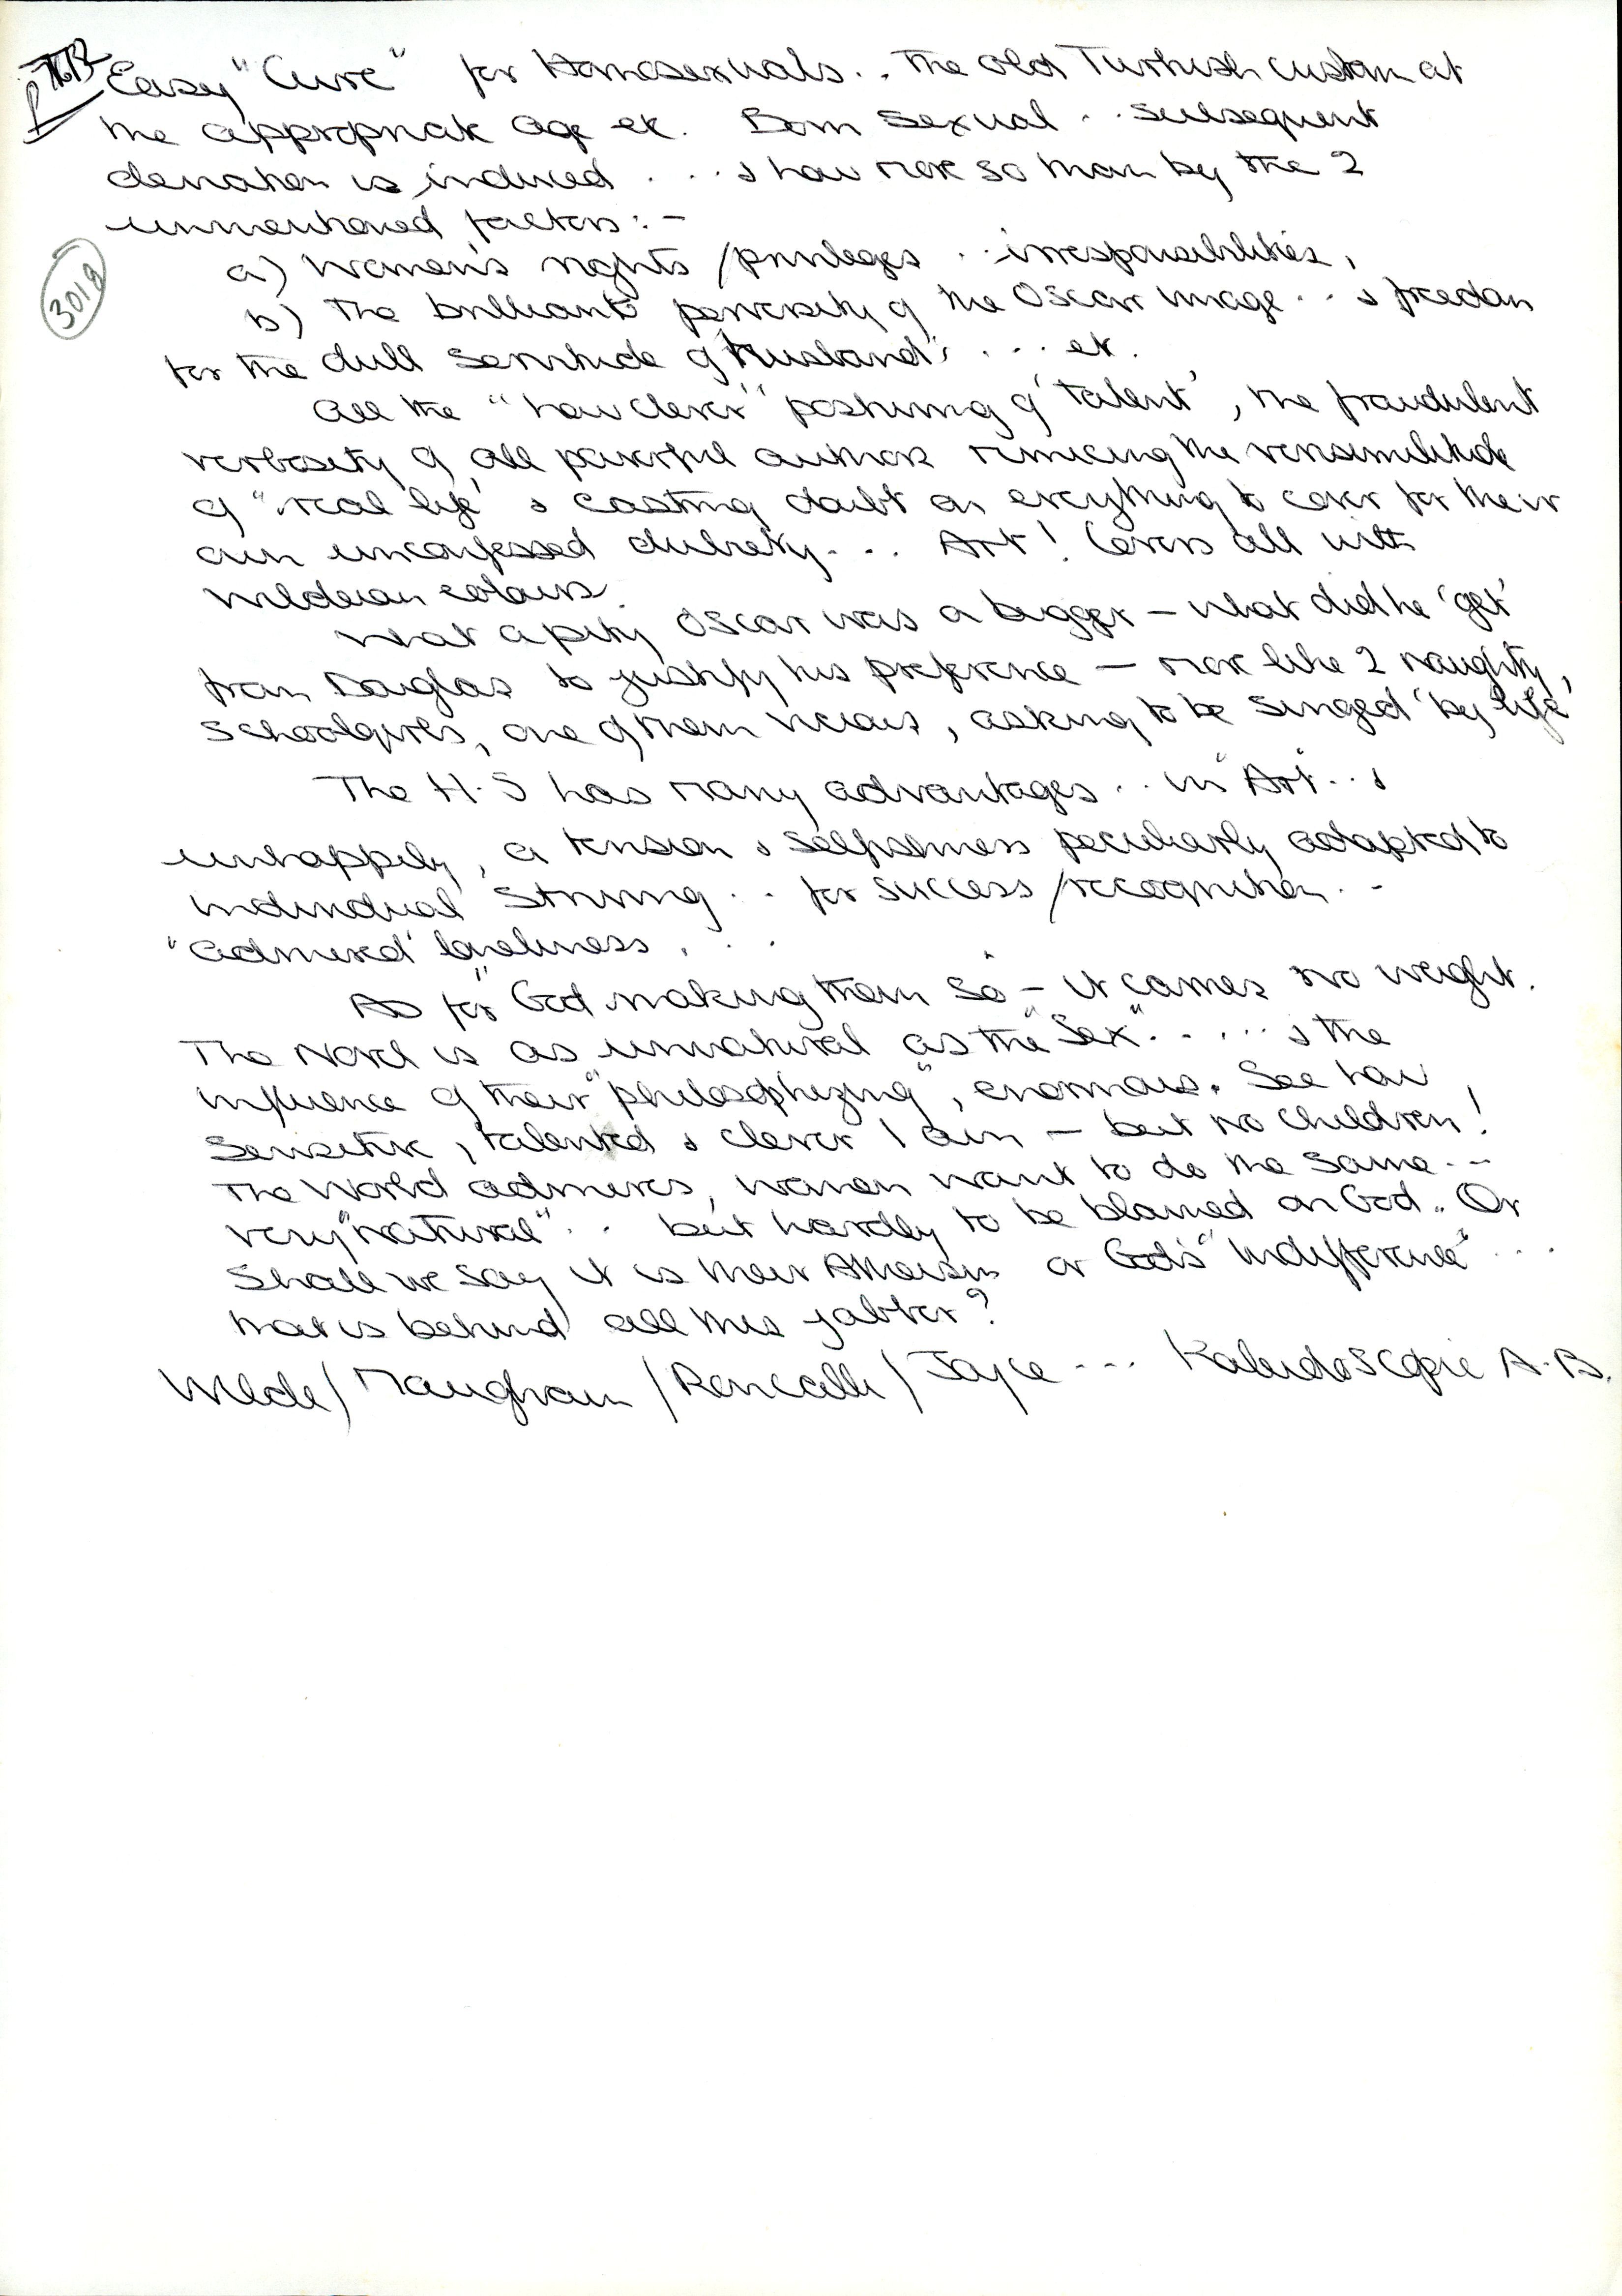 Easy "Cure" for Homosexuals.. The old Turkish custom at
the appropriate age etc. Born sexual .. subsequent
deviation is induced .... & how more so than by the 2
unmentioned factors:-
3018
a) Women's rights/privileges .. irresponsibilities,
b) The brilliant perversity of the Oscar image .. & freedom
for the dull servitude of 'Husband'.... etc.
All the "how clever" posturing of 'talent', the fraudulent
verbosity of all powerful authors mimicing the verisimilitude
of "real life" & casting doubt on everything to cover for their
own unconfessed dubiety... Art! Covers all with
Wildean colours.
What a pity Oscar was a bugger – what did he 'get'
from Douglas to justify his preference – more like 2 naughty
schoolgirls, one of them vicious, asking to be singed 'by life'
The H.S has many advantages .. in "Art" .. &
unhappily, a tension & selfishness peculiarly adapted to
individual striving .. for success/recognition ..
"admired" loneliness . . .
As for "God making them so" – it carries no weight.
The Word is as unnatural as the "Sex" ..... & the
influence of their "philosophizing", enormous. See how
sensitive, talented & clever I am – but no children!
The World admires, women want to do the same ..
very "natural" .. but hardly to be blamed on God.. Or
shall we say it is their Atheism or God's "Indifference" ...
that is behind all this jabber?
Wilde/Maugham/Roncalli/Joyce ... Kaleidoscope A.B.